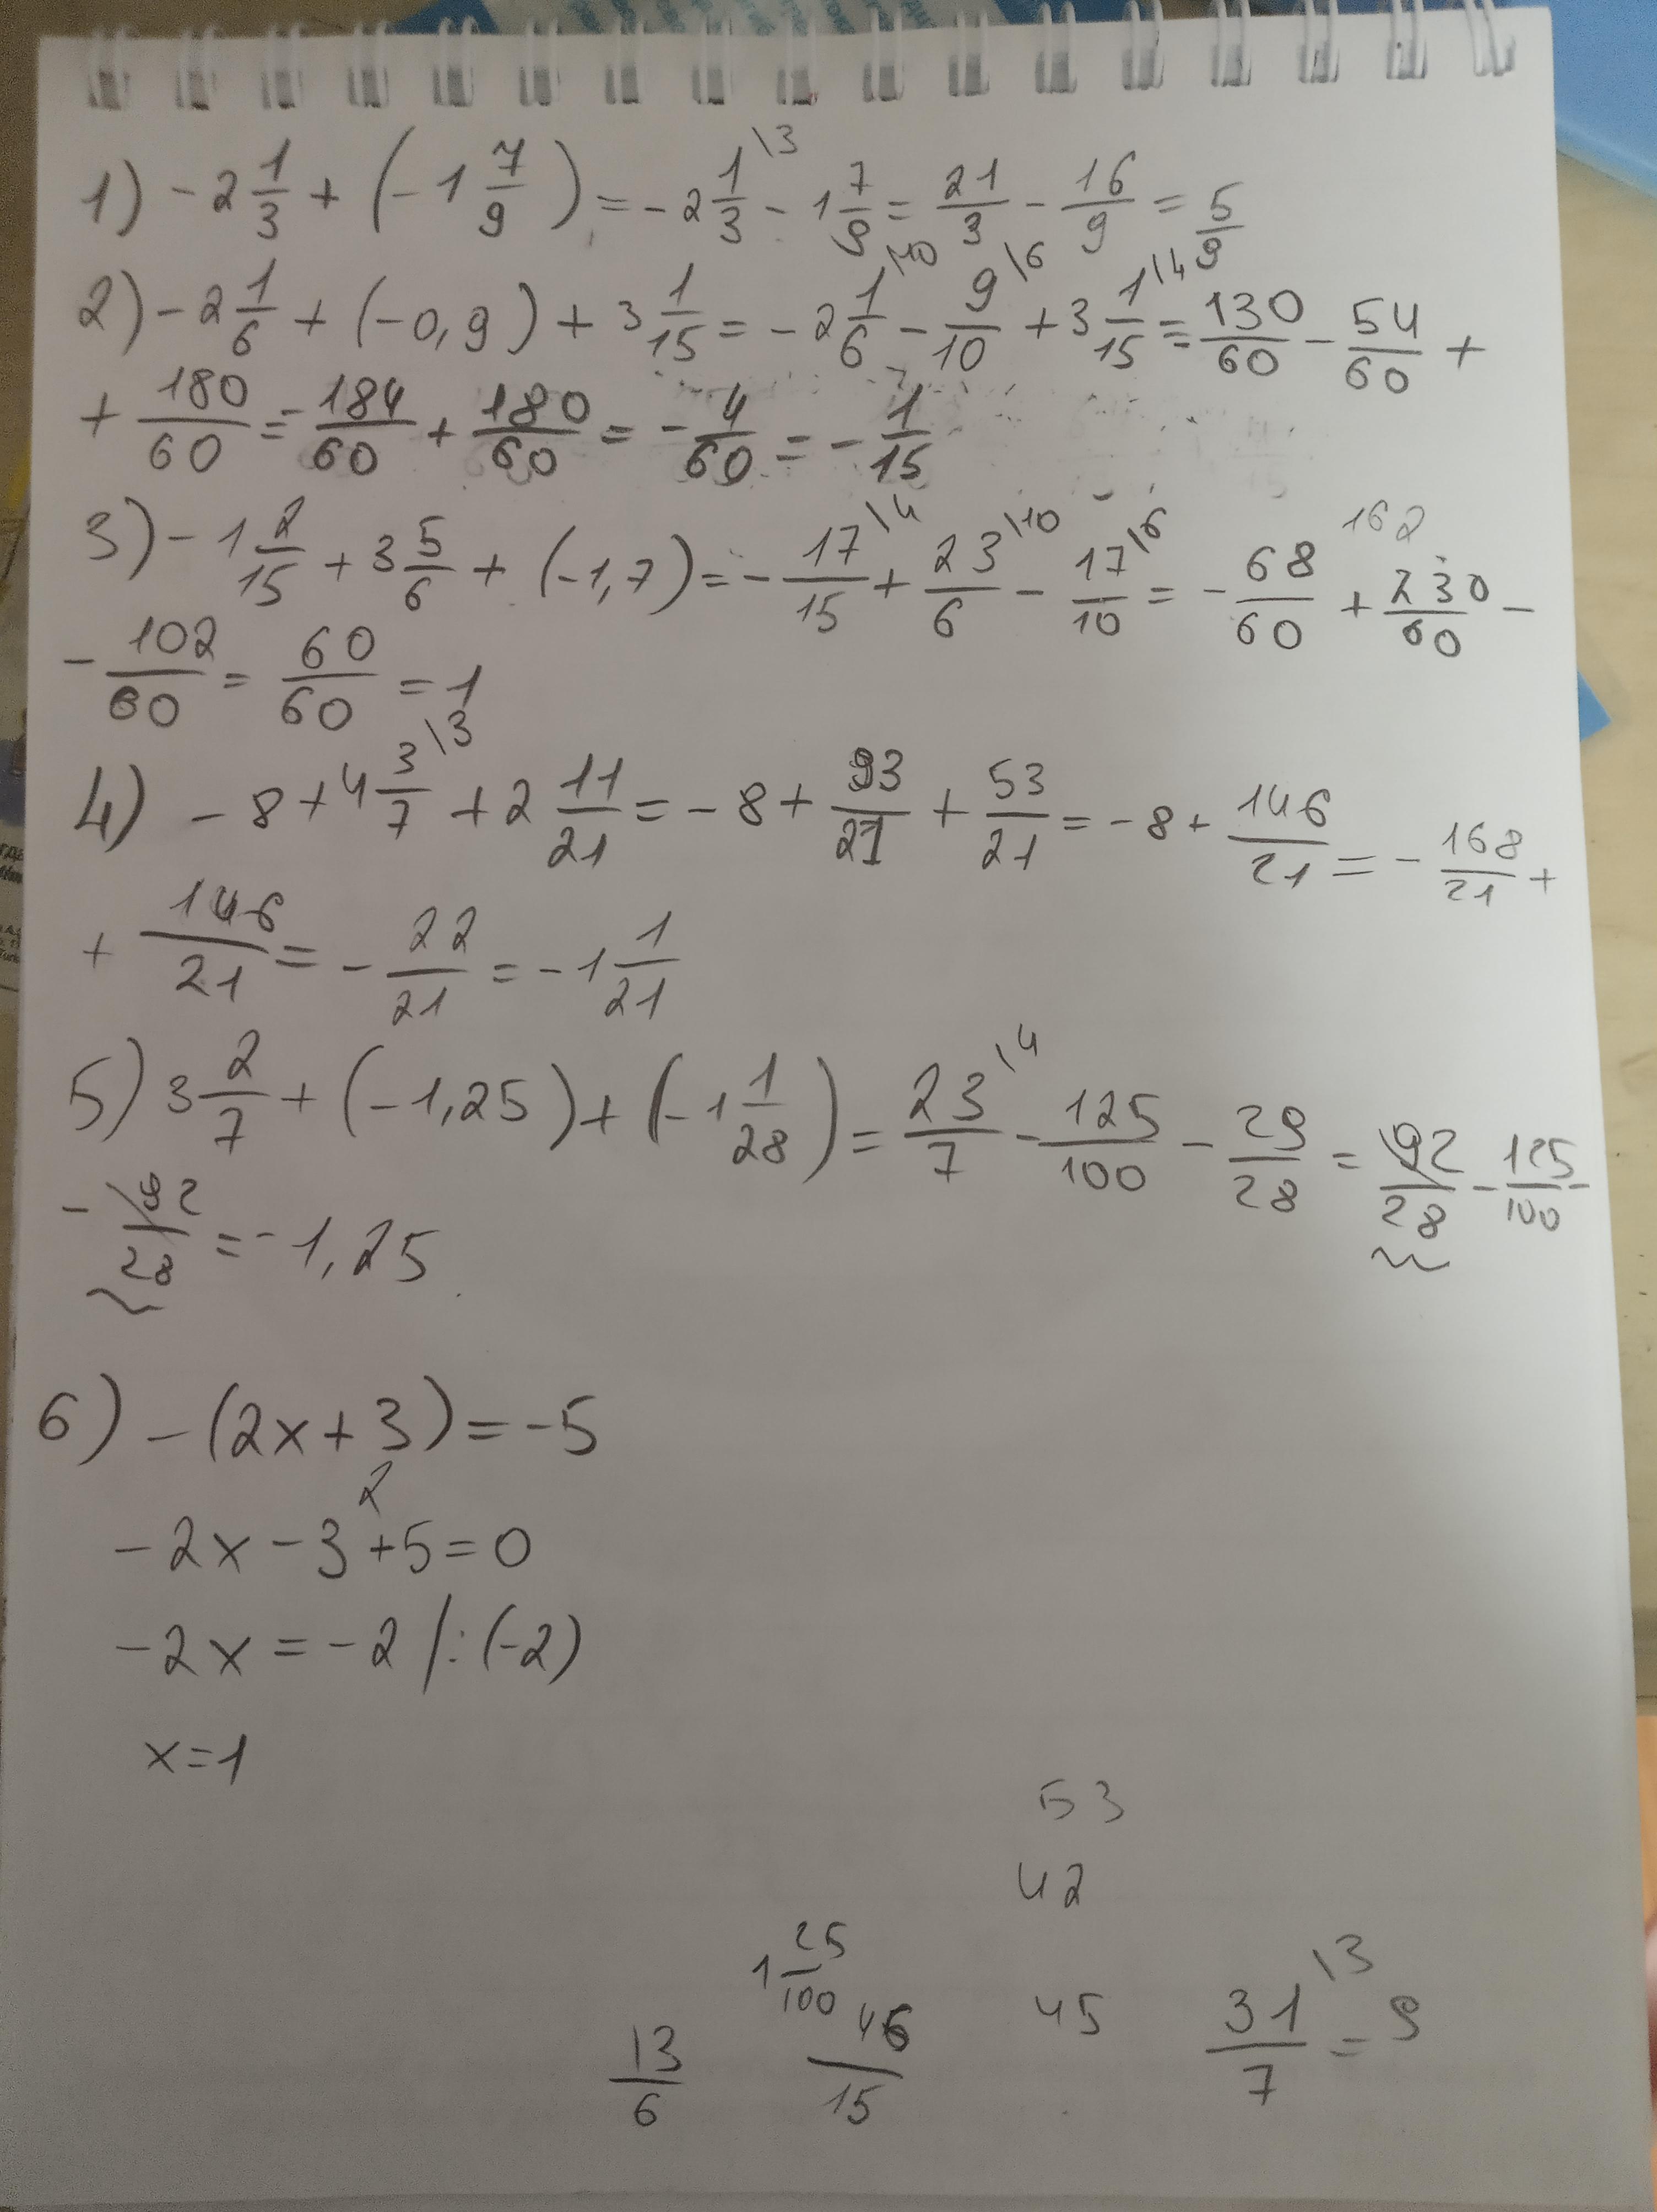 1) -2 1/3 + (-1 7/9) = -2 1/3 \3 - 1 7/9 = 21/3 - 16/9 = 5/9
2) -2 1/6 + (-0,9) + 3 1/15 = -2 1/6 \10 - 9/10 \6 + 3 1/15 \4 = 130/60 - 54/60 +
+ 180/60 = -184/60 + 180/60 = -4/60 = -1/15
3) -1 2/15 + 3 5/6 + (-1,7) = -17/15 \4 + 23/6 \10 - 17/10 \6 = -68/60 + 230/60 -
162
- 102/60 = 60/60 = 1
4) -8 + 4 3/7 \3 + 2 11/21 = -8 + 93/21 + 53/21 = -8 + 146/21 = -168/21 +
+ 146/21 = -22/21 = -1 1/21
5) 3 2/7 + (-1,25) + (-1 1/28) = 23/7 \4 - 125/100 - 29/28 = 92/28 - 125/100 -
- 92/28 = -1,25
6) -(2x+3) = -5
2
-2x - 3 + 5 = 0
-2x = -2 /:(-2)
x = 1
53
42
1 25/100
13/6
46/15
45
31/7 \3 = 9